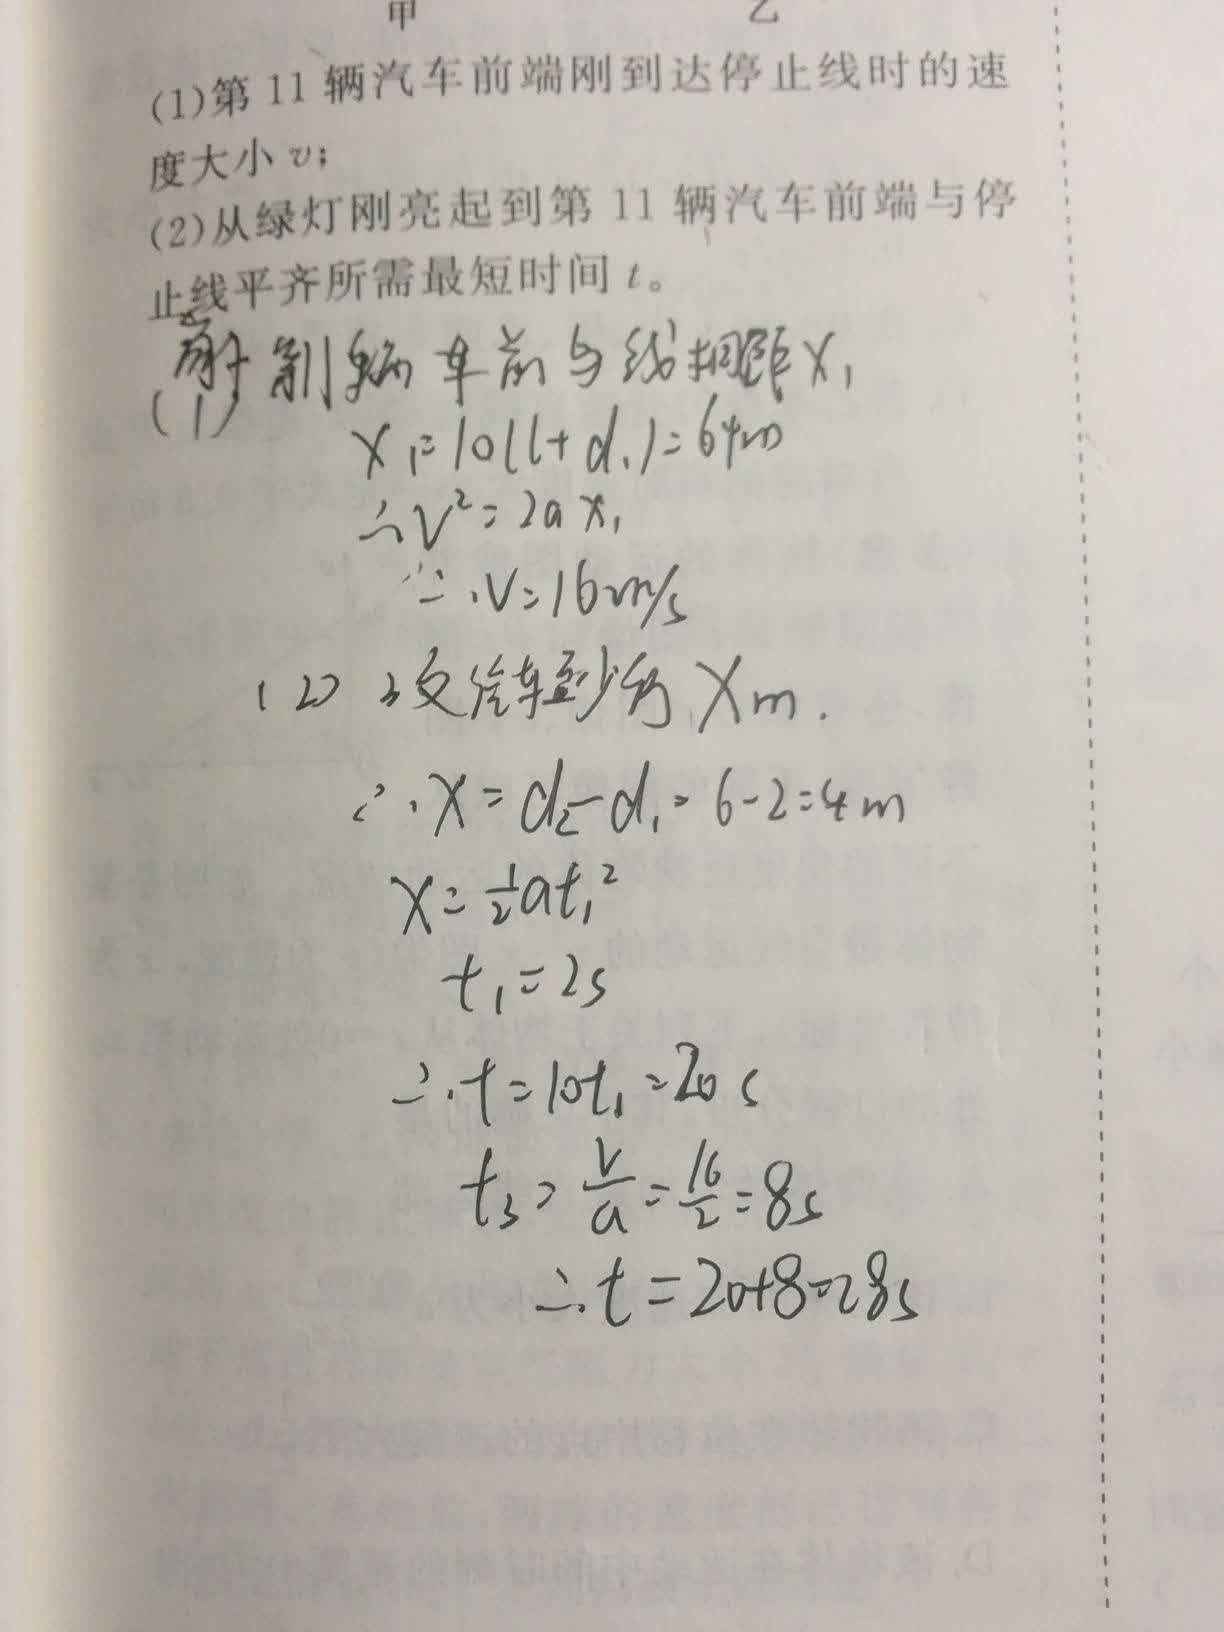 甲 乙
(1)第11辆汽车前端刚到达停止线时的速
度大小v;
(2)从绿灯刚亮起到第11辆汽车前端与停
止线平齐所需最短时间t。
辆车前与线相距X₁
(1)
X₁=10(l+d₁)=64m
∴V²=2aX₁
∴V=16m/s
(2) 设汽车至少行Xm.
∴X=d₂-d₁=6-2=4m
X=½at₁²
t₁=2s
∴t=10t₁=20s
t₃=V/a=16/2=8s
∴t=20+8=28s